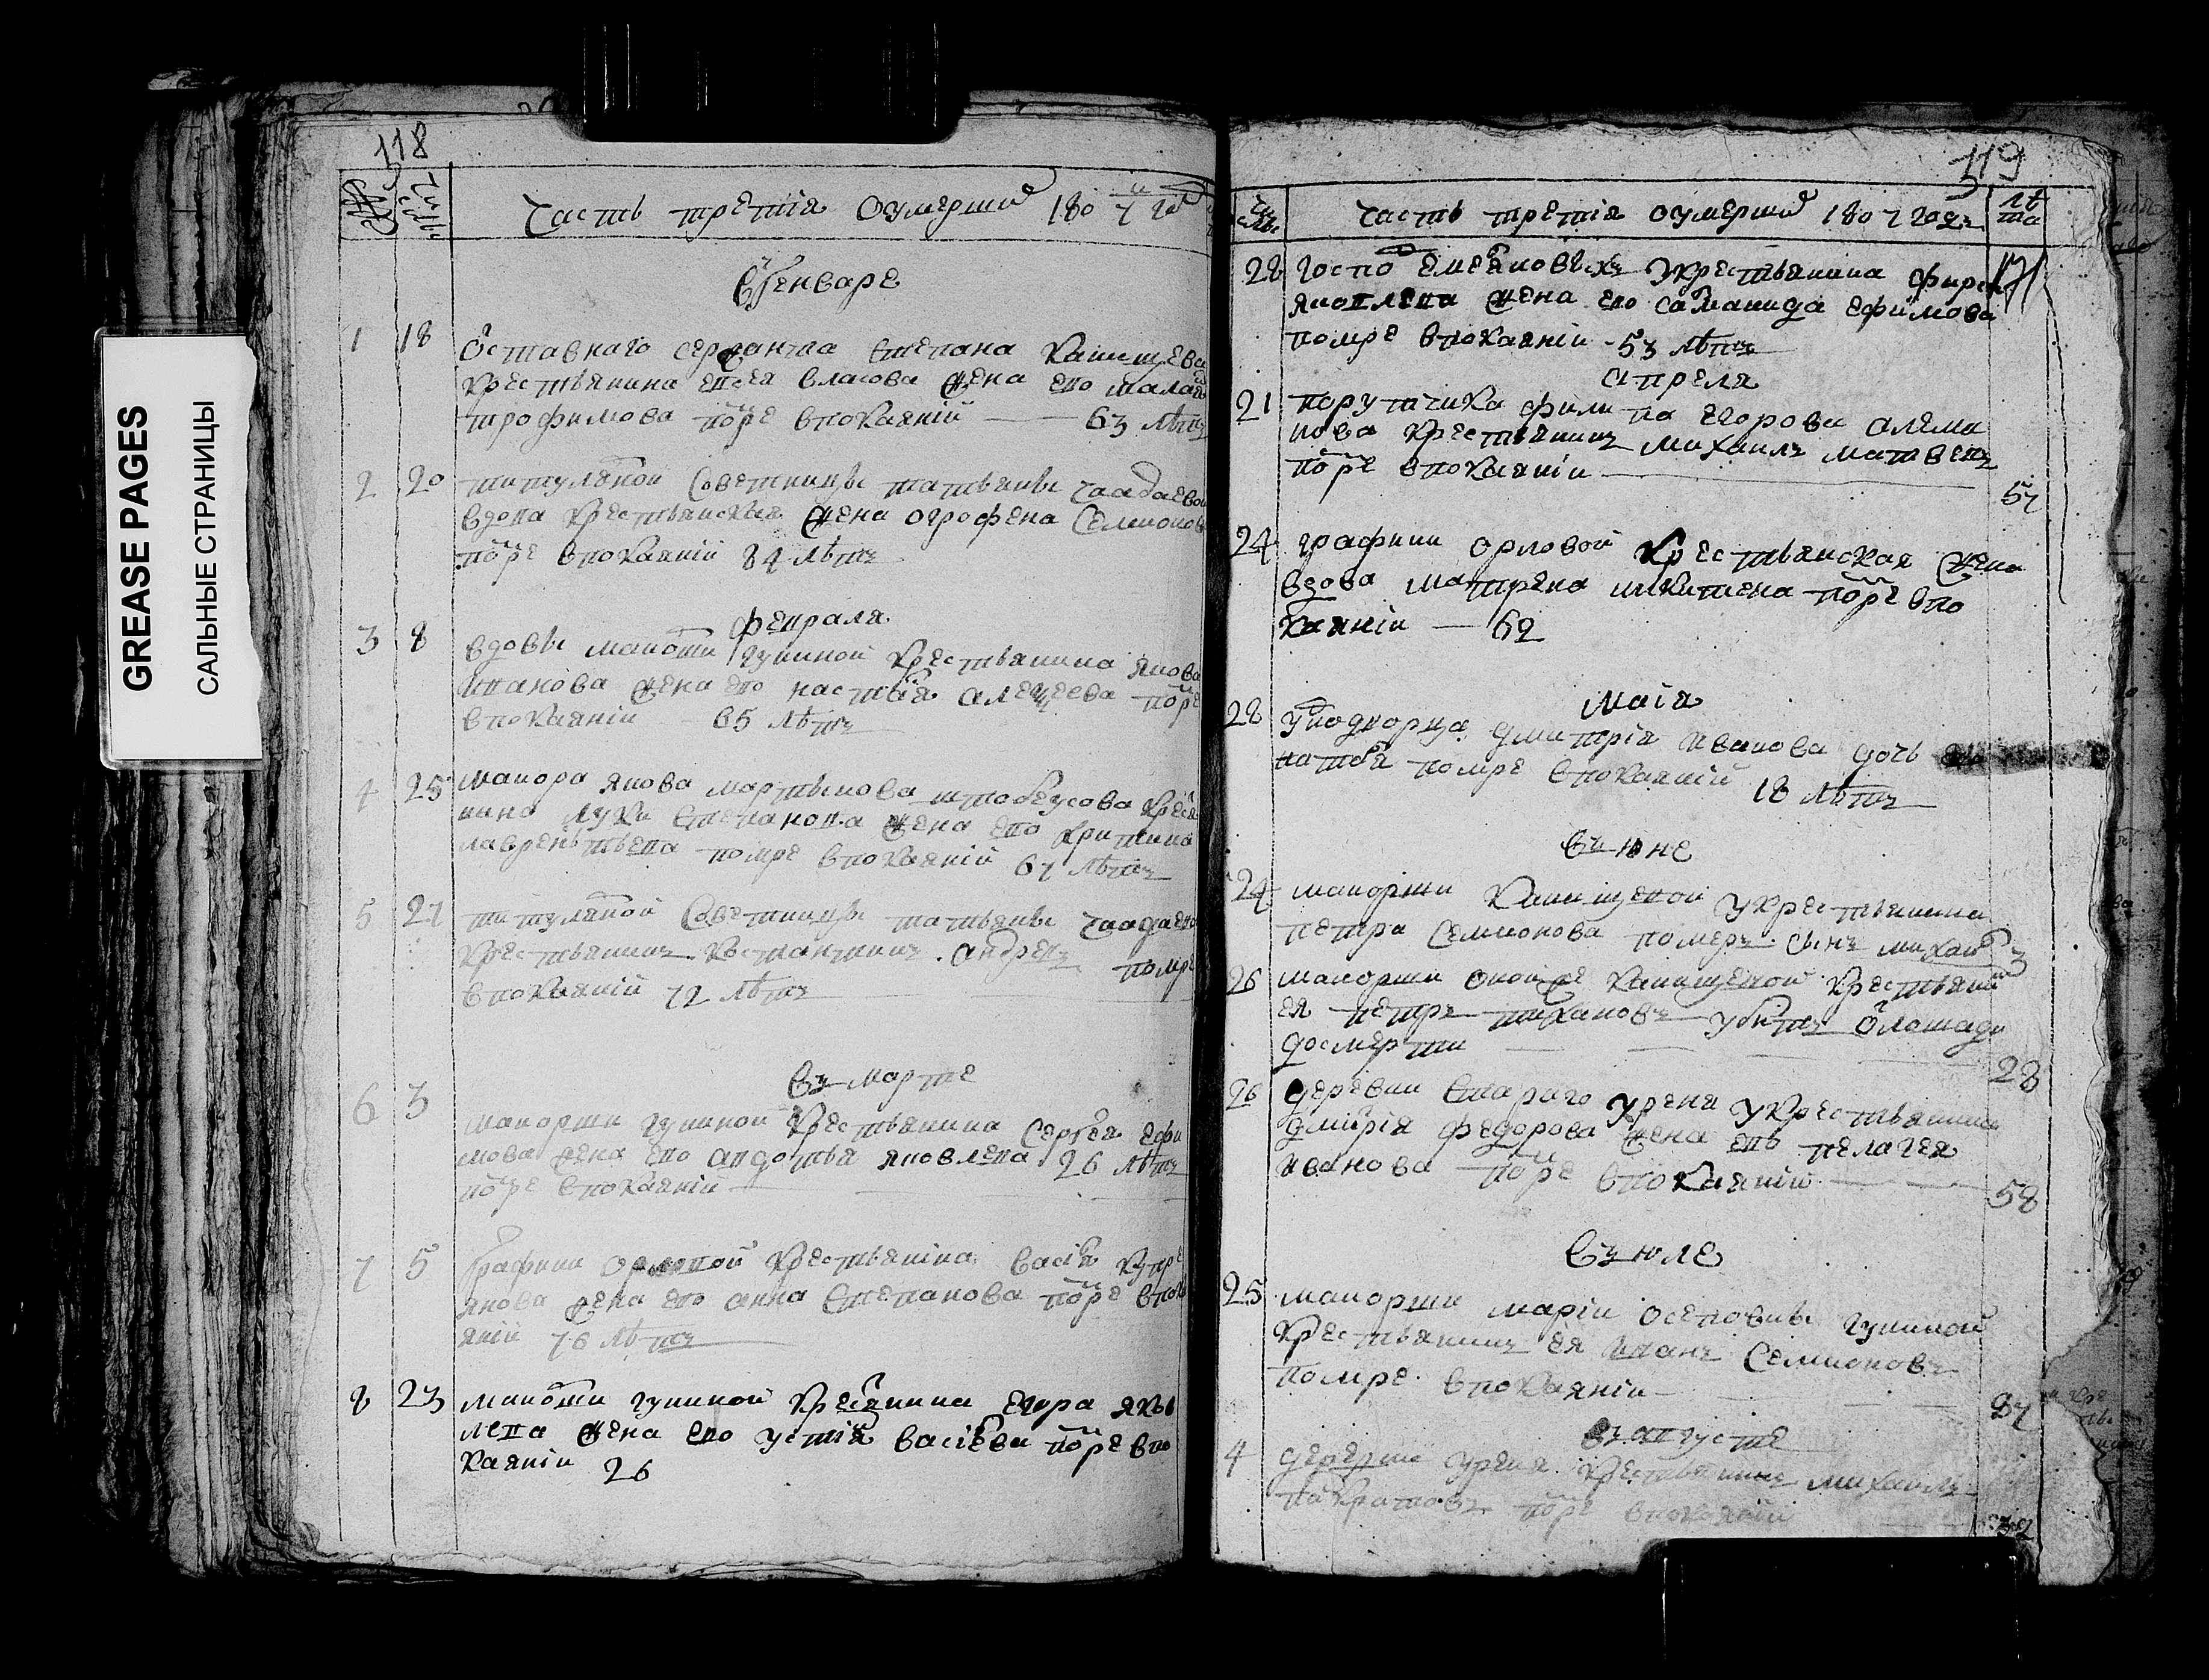 GREASE PAGES
САЛЬНЫЕ СТРАНИЦЫ
118
часть третiя оумерши 1807 го
Вгенваре
1 18 Оставного сержанта степана Канищева
крестьянина власова жена ево
трофимова поре впокаянiй 63 лѣтъ
2 20 титулярной советницы татьяны чаадаевой
вдова крестьянская жена огрофена Семионова
поре впокаянiй 84 лѣтъ
февраля
3 8 вдовы маиорши гуниной крестьянина якова
иванова жена ево настасiя алеѯеева поре
впокаянiи 65 лѣтъ
4 25 маиора якова мартынова крестья
нина луки степанова жена ево
лаврентьева помре впокаянiй 67 лѣтъ
5 27 титулярной советницы татьяны чаадаевой
крестьянинъ костантинъ андреевъ помре
впокаянiй 72 лѣтъ
въ марте
6 3 маиорши гуниной крестьянина сергея ефи
мова жена ево авдотья яковлева 26 лѣтъ
поре впокаянiй
7 5 графини орловой крестьянiна васiля купре
янова жена ево анна степанова поре впока
янiй 76 лѣтъ
8 23 маиорши гуниной крестьянина егора яков
лева жена ево устинiя васiлева поре впо
каянiи 26
119
часть третiя оумерши 1807 года лѣ та
28 госпо крестьянина
яковлева жена ево саломанида ефимова
помре впокаянiи 53 лѣтъ
апреля
21 порутчика филипа егорова алями
нова крестьянинъ михаилъ матвеевъ
поре впокаянiи 57
24 графини орловой крестьянская жена
вдова матрена никитена поре впо
каянiи 62
маiя
28 дмитрiя иванова дочь
помре впокаянiй 18 лѣтъ
въ июне
24 маиорши канищевой укрестьянина
петра семионова померъ сынъ михаи
26 маиорши оной же канищевой крестьяни
ея петръ убитъ о лошади
досмерти 28
26 деревни стараго урена укрестьянина
дмитрiя федорова жена евь пелагея
иванова поре впокаянiй 58
въ июле
25 маиорши марiи осеповны гуниной
крестьянинъ ея иванъ семионовъ
помре впокаянiи 37
въ августе
4 деревни урена крестьянинъ михаилъ
панкратовъ поре впокаянiй